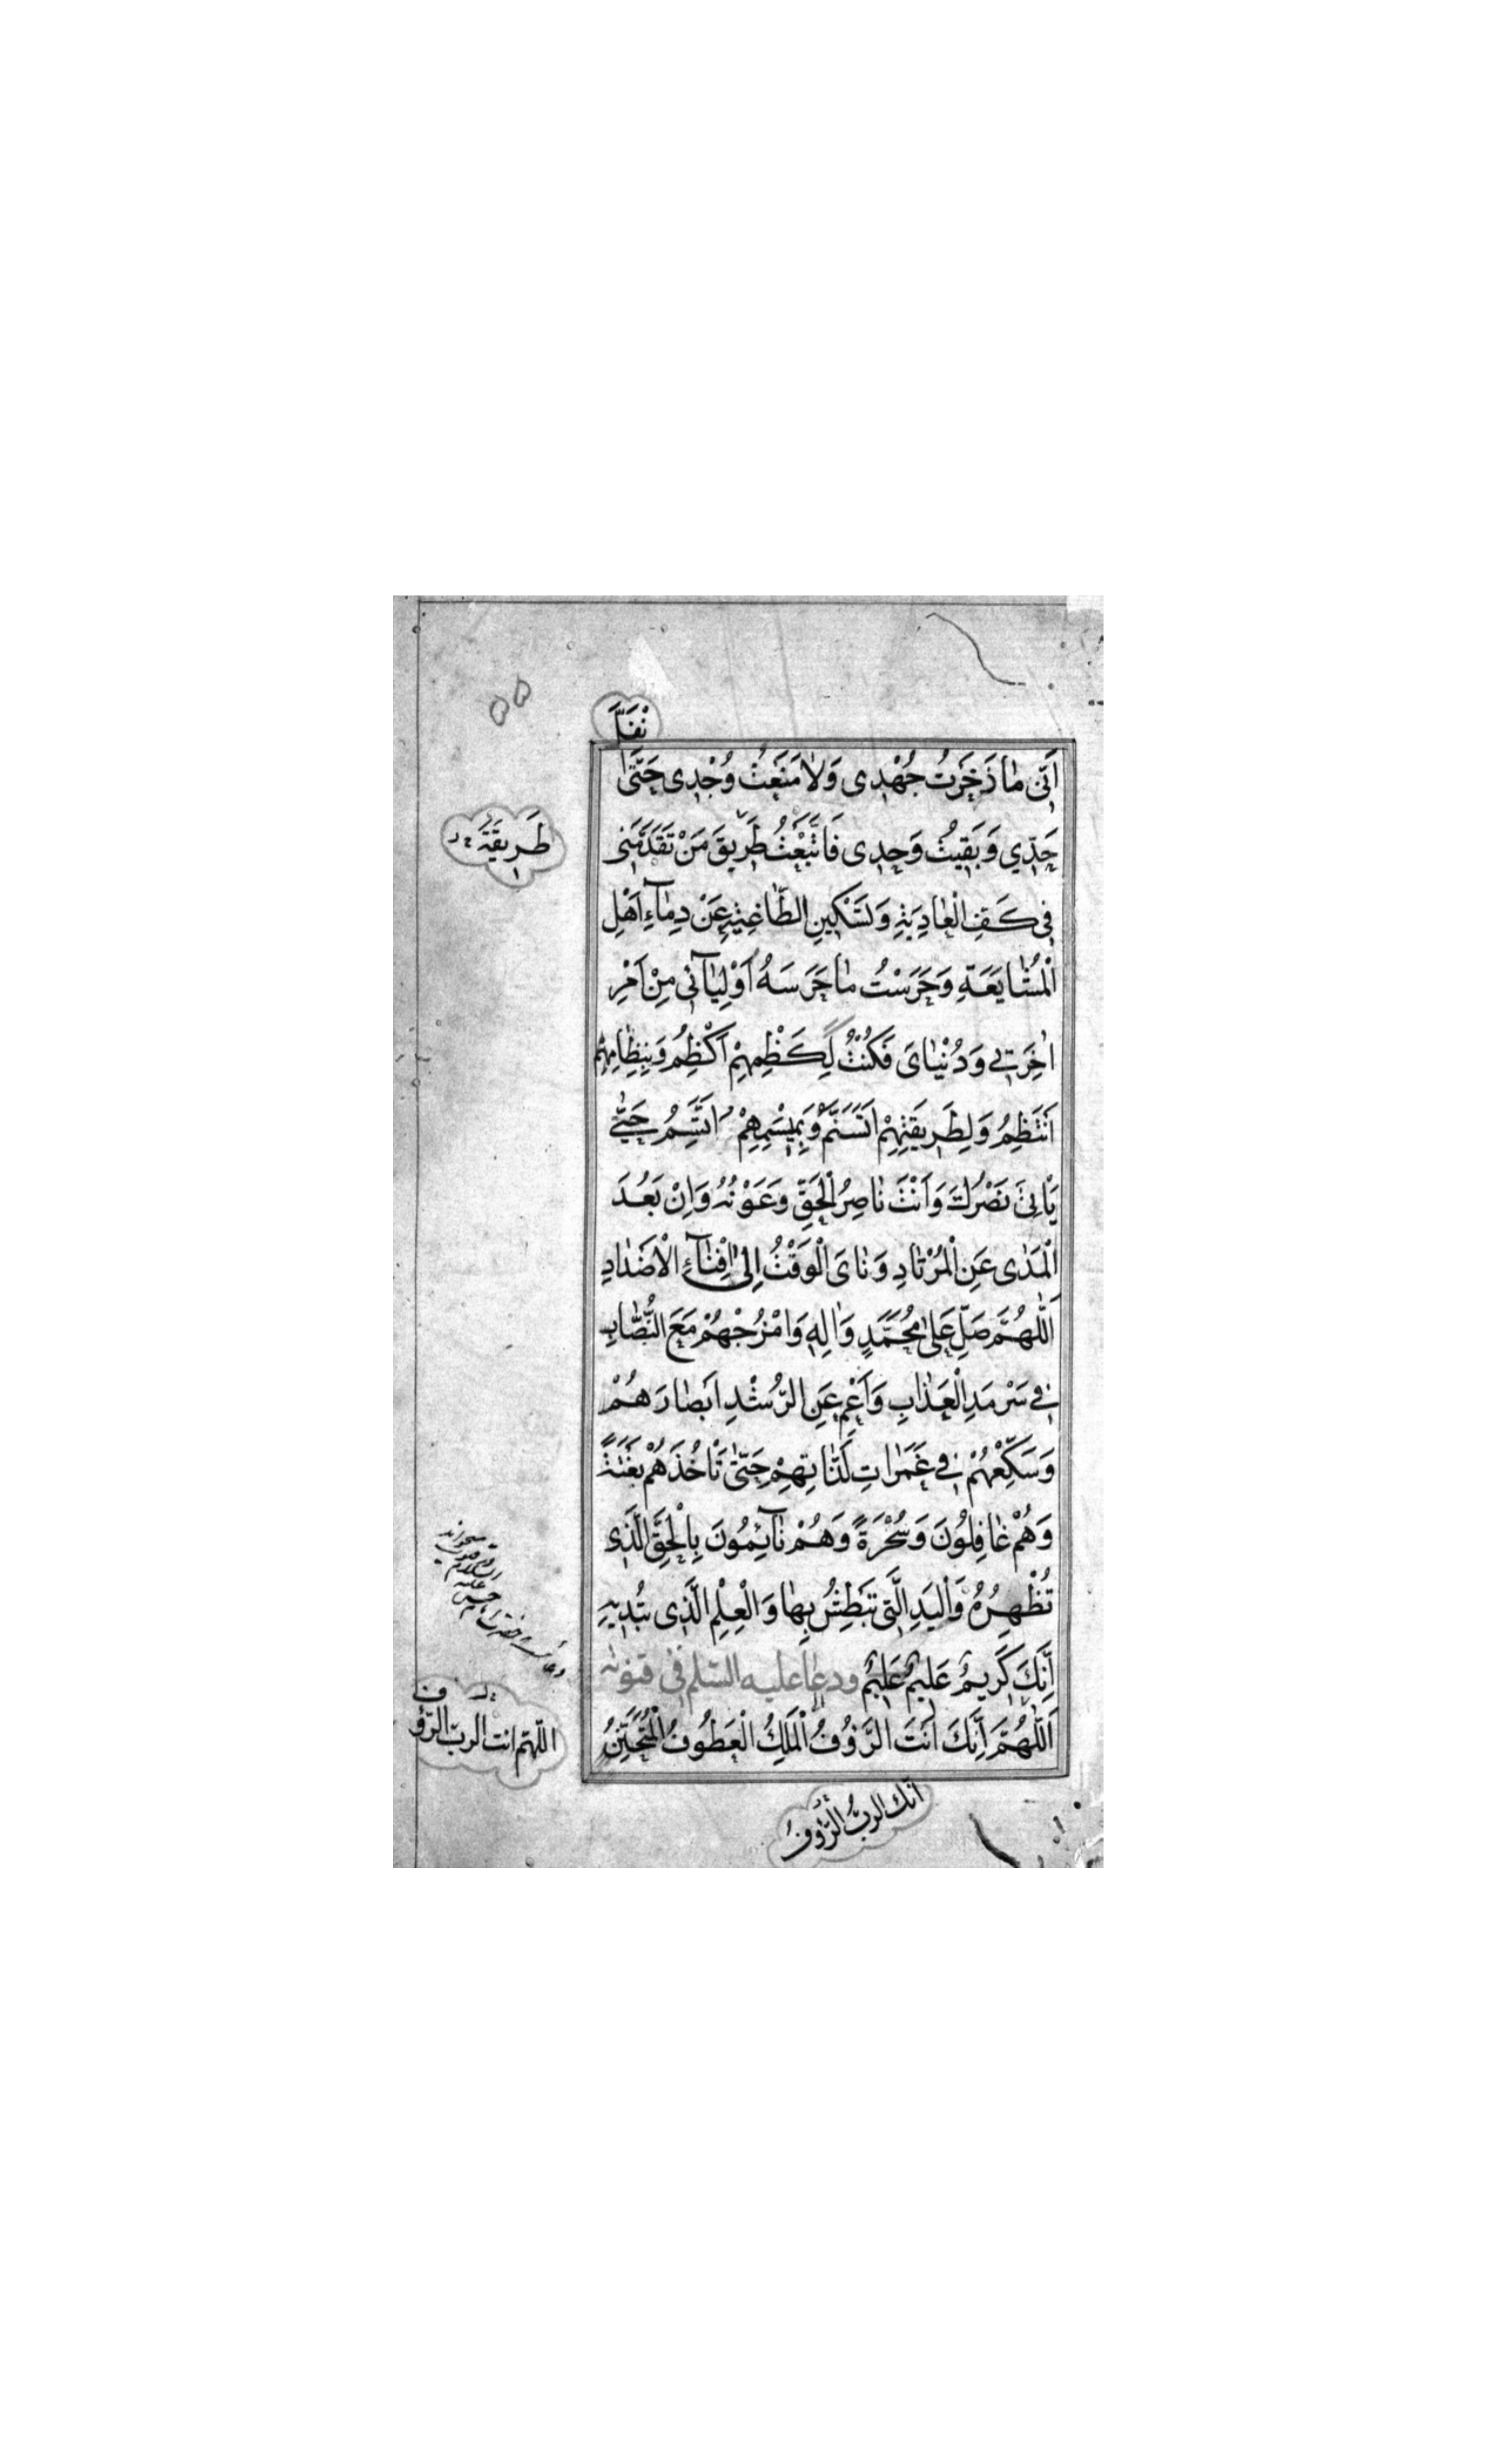 نْفَلَّ
اَنّى مٰا ذَخَرْتُ جُهْدِى وَلٰا مَنَعْتُ وُجْدِى حَتَّىٰ
حَدّي وَبَقِيتُ وَحِدِى فَاتَّبَعْتُ طَرِيقَ مَنْ تَقَدَّمَنِى
طَرِيقَةَ
فِى كَفِّ الْعٰادِيَةِ وَتَسْكِينِ الطّٰاغِيَةِ عَنْ دِمٰآءِ اَهْلِ
الْمُشٰايَعَةِ وَحَرَسْتُ مٰا حَرَسَهُ اَوْلِيٰآئى مِنْ اَمْرِ
اٰخِرَتِي وَدُنْيٰاىَ فَكُنْتُ لِكَظْمِهِمْ اَكْظِمُ وَبِنِظٰامِهِمْ
اَنْتَظِمُ وَلِطَرِيقَتِهِمْ اَتَسَنَّمُ وَبِمِيسَمِهِمْ اَتَّسِمُ حَتّٰى
يَأْتِىَ نَصْرُكَ وَاَنْتَ نٰاصِرُ الْحَقِّ وَعَوْنُهُ وَاِنْ بَعُدَ
الْمَدٰى عَنِ الْمُرْتٰادِ وَنٰاىَ الْوَقْتُ اِلىٰ اِفْنٰآءِ الْاَضْدٰادِ
اَللّٰهُمَّ صَلِّ عَلىٰ مُحَمَّدٍ وَاٰلِهِ وَامْزُجْهُمْ مَعَ النُّصّٰابِ
فِي سَرْمَدِ الْعَذٰابِ وَاَعْمِ عَنِ الرُّشْدِ اَبصٰارَهُمْ
وَسَكِّعْهُمْ فِي غَمَرٰاتِ لَذّٰاتِهِمْ حَتّىٰ تَأْخُذَهُمْ بَغْتَةً
وَهُمْ غٰافِلُونَ وَسُخْرَةً وَهُمْ نٰآئِمُونَ بِالْحَقِّ الَّذِى
تُظْهِرُهُ وَالْيَدِ الَّتى تَبْطِشُ بِهٰا وَالْعِلْمِ الَّذِى تُبْدِيهِ
اِنَّكَ كَرِيمٌ عَلِيمٌ عَلِيمٌ ودعا عليه السّلم فى قنوته
اَللّٰهُمَّ اِنَّكَ اَنْتَ الرَّؤُفُ الْمَلِكُ الْعَطُوفُ الْمُتَحَنِّنُ
اللّهمّ انت الربّ الرّؤف
انّك الربُّ الرَّؤُفُ